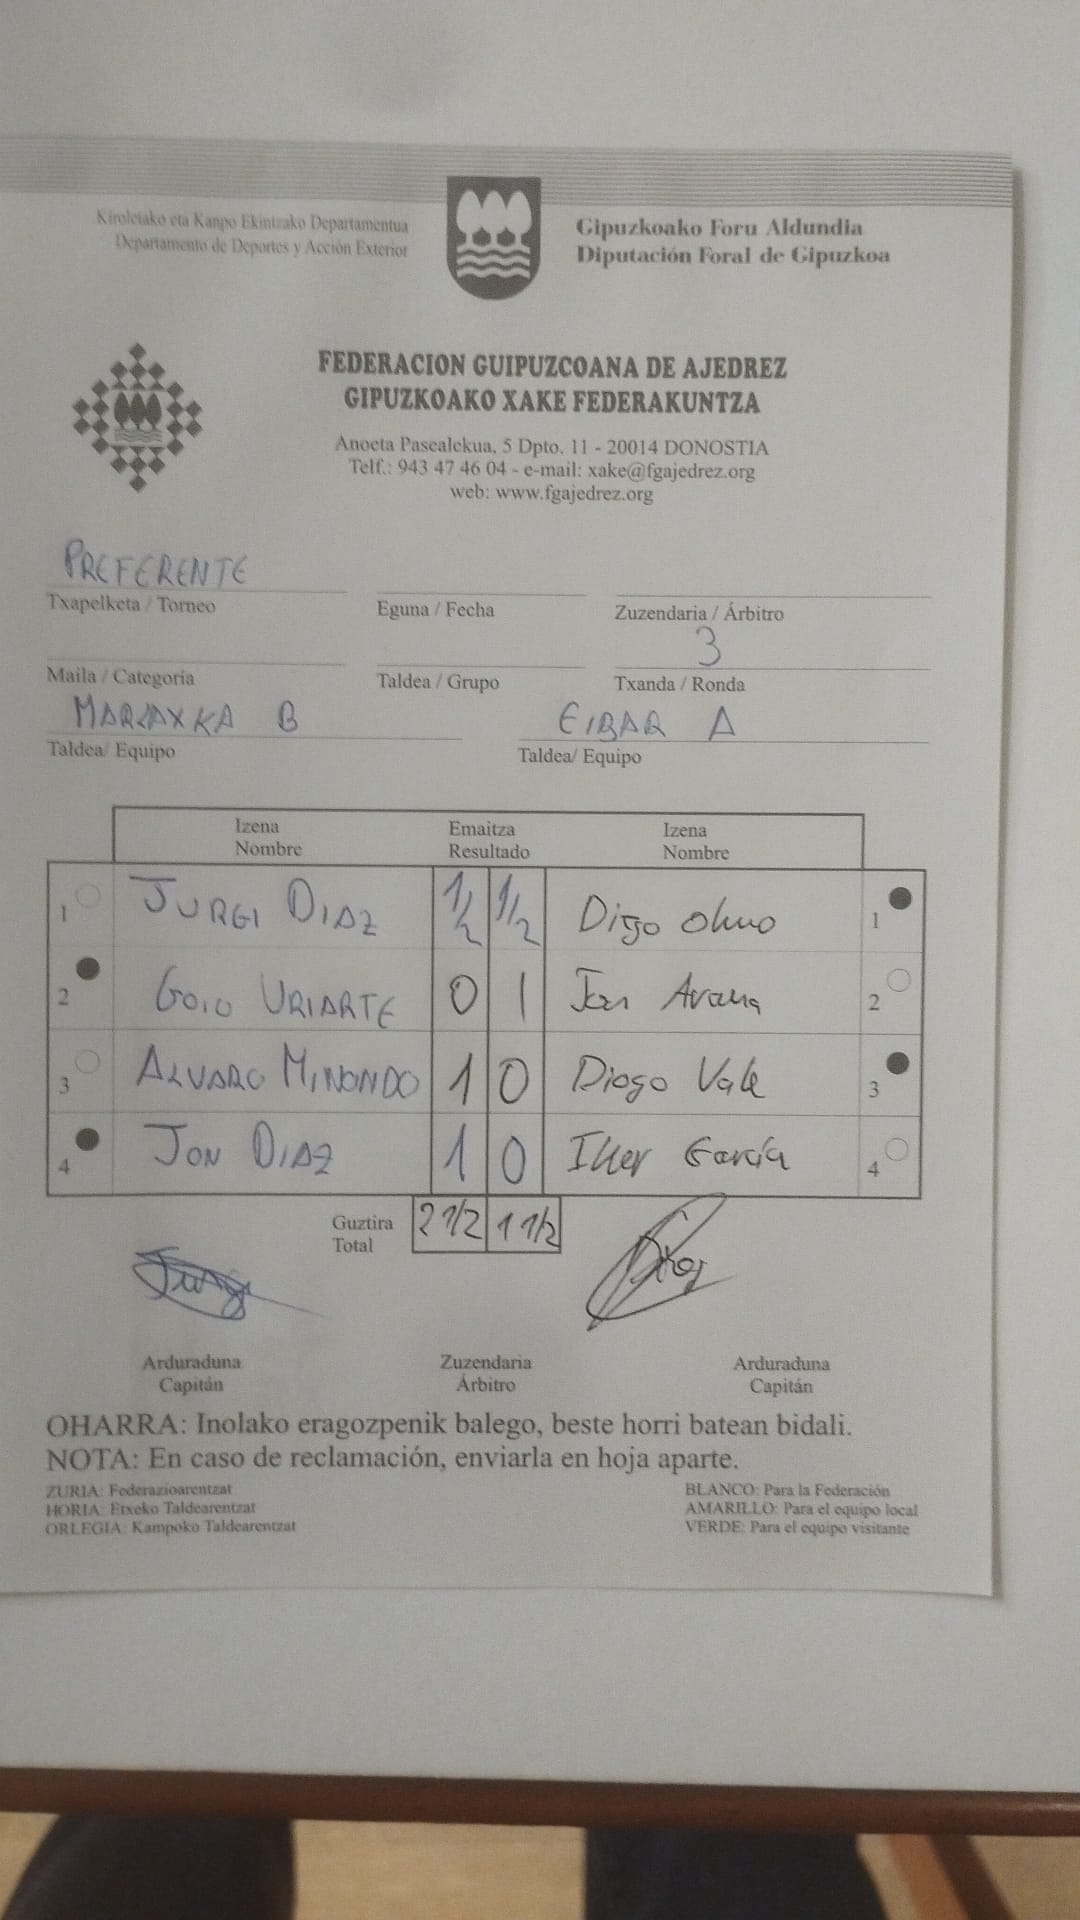 Kiroletako eta Kanpo Ekintzako Departamentua
Departamento de Deportes y Acción Exterior
Gipuzkoako Foru Aldundia
Diputación Foral de Gipuzkoa
FEDERACION GUIPUZCOANA DE AJEDREZ
GIPUZKOAKO XAKE FEDERAKUNTZA
Anoeta Pasealekua, 5 Dpto. 11 - 20014 DONOSTIA
Telf.: 943 47 46 04 - e-mail: xake@fgajedrez.org
web: www.fgajedrez.org
PREFERENTE
Txapelketa / Torneo Eguna / Fecha Zuzendaria / Árbitro
3
Maila / Categoría Taldea / Grupo Txanda / Ronda
MARLAXKA B EIBAR A
Taldea/ Equipo Taldea/ Equipo
Izena Emaitza Izena
Nombre Resultado Nombre
1 JURGI DIAZ 1/2 1/2 Diego Olmo 1
2 GOIO URIARTE 0 1 Jon Arana 2
3 ALVARO MINONDO 1 0 Diogo Vale 3
4 JON DIAZ 1 0 Iker García 4
Guztira 2 1/2 1 1/2
Total
Arduraduna Zuzendaria Arduraduna
Capitán Árbitro Capitán
OHARRA: Inolako eragozpenik balego, beste horri batean bidali.
NOTA: En caso de reclamación, enviarla en hoja aparte.
ZURIA: Federazioarentzat BLANCO: Para la Federación
HORIA: Etxeko Taldearentzat AMARILLO: Para el equipo local
ORLEGIA: Kampoko Taldearentzat VERDE: Para el equipo visitante